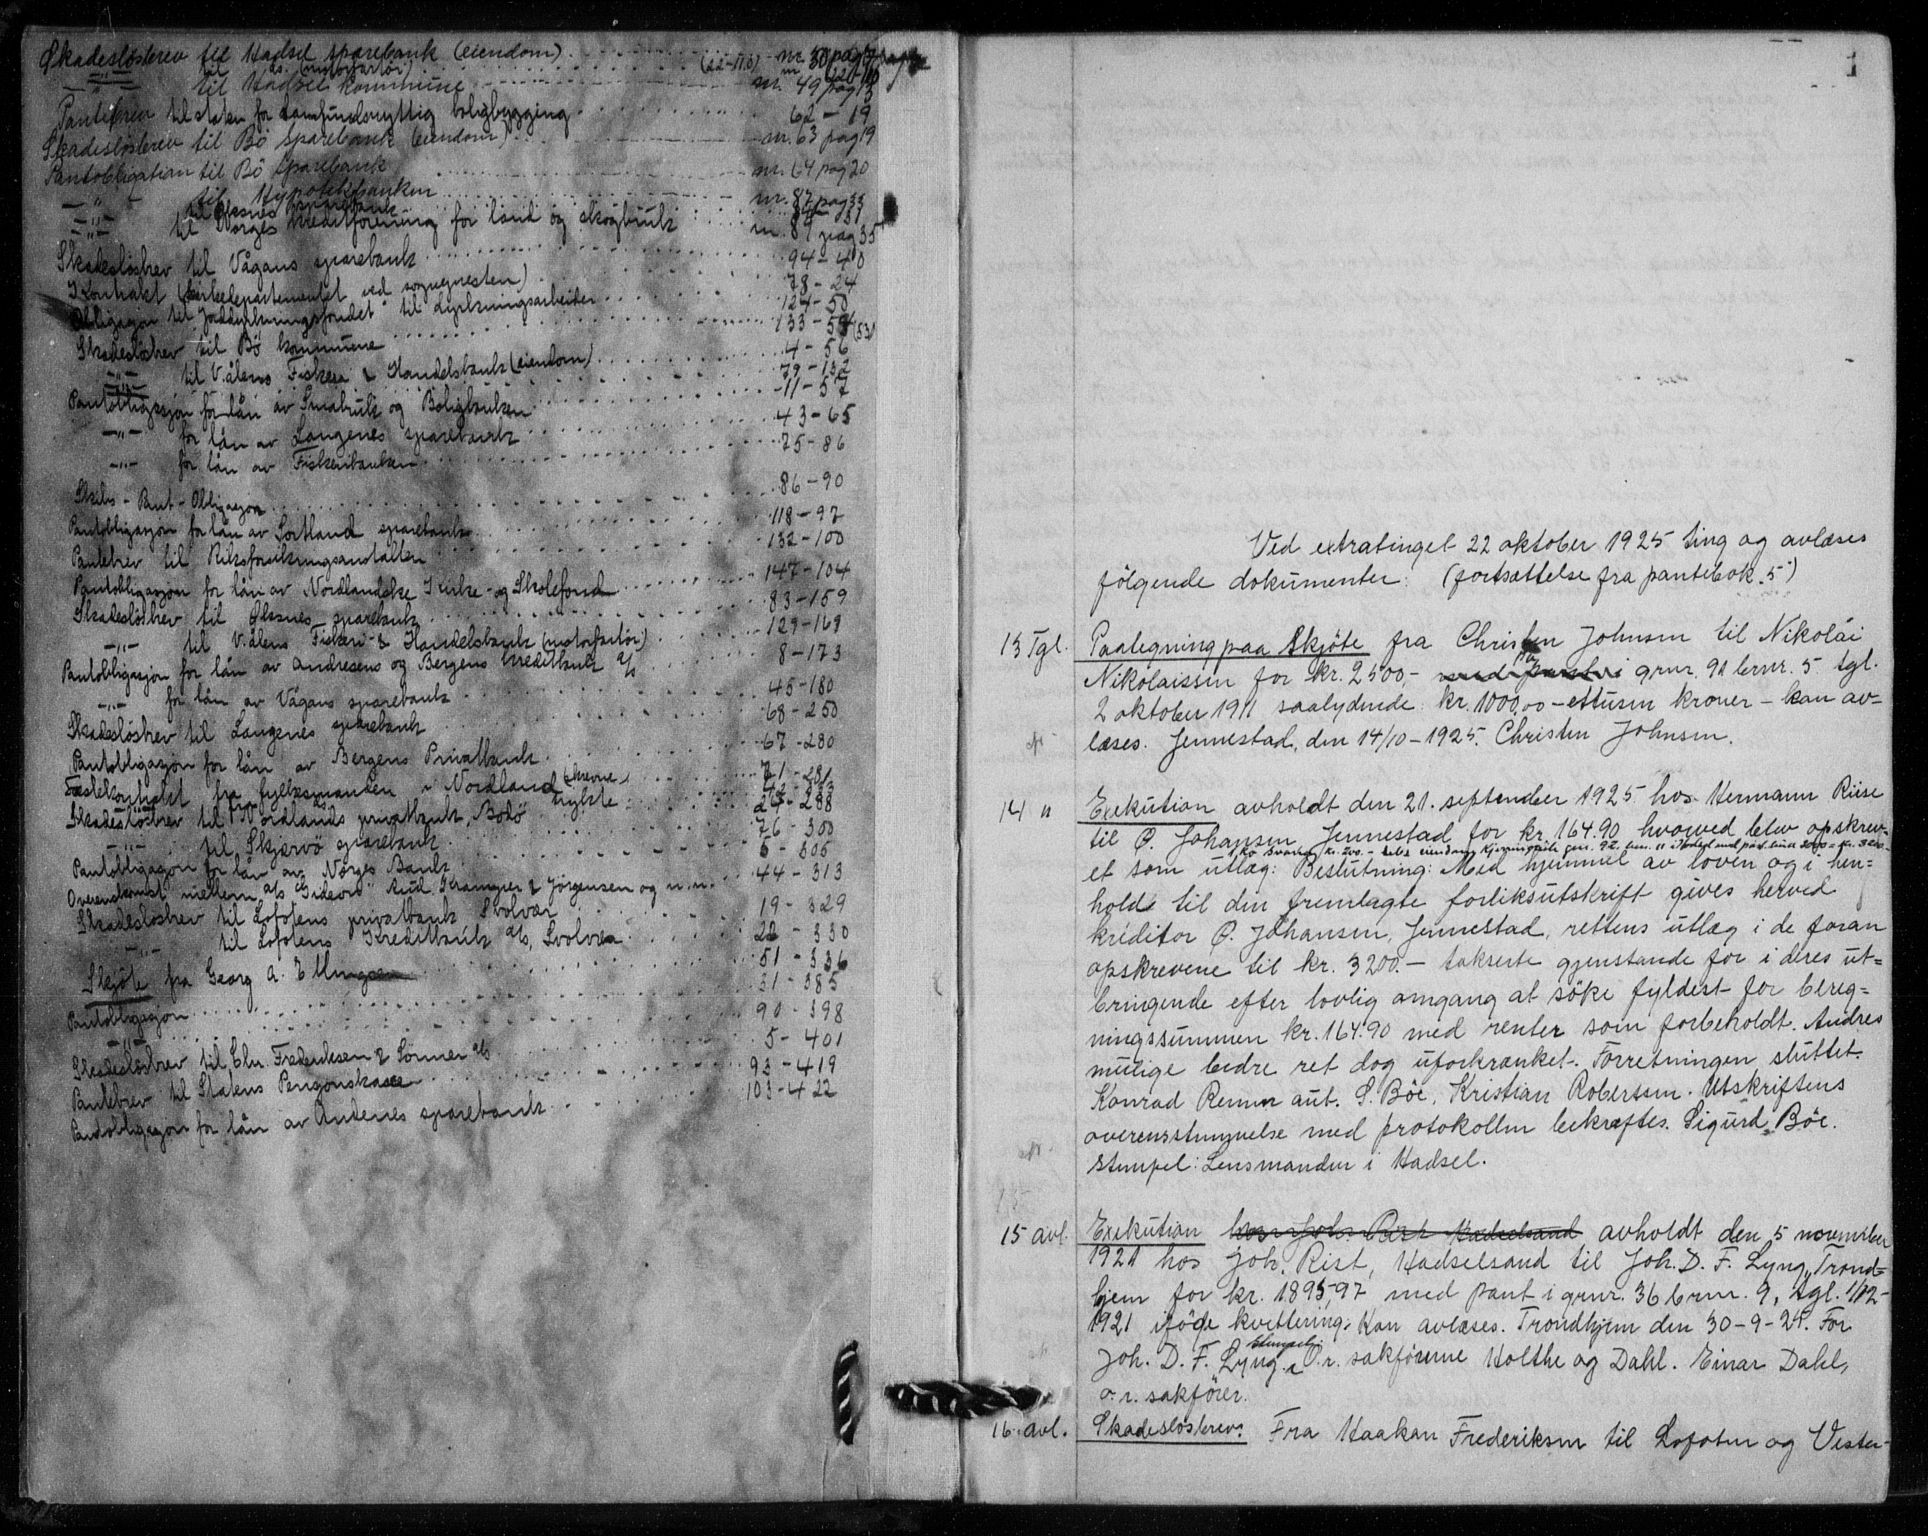 Skadesløsbrev til Hadsel sparebank (eiendom) (22-116) nr. 50 pag
do. (motorfartöi)
—"— til Hadsel kommune nr. 49 pag 13
Pantebrev til staten for samfundsnyttig boligbygging 62 - 19
Skadeslösbrev til Bö sparebank (eiendom) nr. 63 pag 19
Pantobligation til Bö Sparebank nr. 64 pag 20
—"— til Hypotekbanken nr. 87 pag 33
til Öksnes sparebank
—"— til Norges Kreditforening for land og skogbruk nr. 89 pag 35
Skadeslösbrev til Vågans sparebank 94 - 40
Kontrakt (kirkedepartementet ved sognepresten) 78 - 24
Obligasjon til Jorddyrkningsfondet til dyrkningsarbeider 124 - 50
Skadeslösbrev til Bö kommune 133 - 54 (53)
4 - 56
—"— til V.ålens Fiskeri & Handelsbank (eiendom) 79 - 132
Pantobligasjon for lån av Småbruk og Boligbanken 11 - 57
—"— for lån av Langenes sparebank 43 - 65
—"— for lån av Fiskeribanken 75 - 86
Skibs - Pant - Obligasjon 86 - 90
Pantobligasjon for lån av Sortland sparebank 118 - 97
Pantebrev til Riksforsikringsanstalten 132 - 100
Pantobligasjon for lån av Nordlandske Kirke- og Skolefond 147 - 104
Skadeslösbrev til Øksnes sparebank 83 - 159
—"— til V.ålens Fiskeri- & Handelsbank (motorfartöi) 129 - 169
Pantobligasjon for lån av Andresens og Bergens Kreditbank A/S 8 - 173
—"— for lån av Vågans sparebank 45 - 180
Skadeslösbrev til Langenes sparebank 68 - 250
Pantobligasjon for lån av Bergens Privatbank 67 - 280
Festekontrakt fra fylkesmannen i Nordland 71 - 281
Skadeslösbrev til Nordlands privatbank, Bodö 27 - 288
—"— til Skjervö sparebank 76 - 300
Pantobligasjon for lån av Norges Bank 5 - 305
Overenskomst mellem A/S "Gideon" Aud. Kramper & Jörgensen og n.n. 44 - 313
Skadeslösbrev til Lofotens privatbank Svolvær 19 - 329
—"— til Lofotens Kreditbank A/S, Svolvær 22 - 330
Skjöte fra Georg A. Ellingsen 51 - 336
Pantobligasjon 31 - 385
—"— 90 - 398
Skadeslösbrev til Chr. Frederiksen & Sönner A/S 5 - 401
Pantebrev til Statens Pensjonskasse 93 - 419
Pantobligasjon for lån av Andenes sparebank 103 - 422
1
Ved extratinget 22 oktober 1925 ting og avlæses
fölgende dokumenter: (fortsættelse fra pantebok 5)
13 Tgl. Paategning paa Skjöte fra Christen Johnsen til Nikolai
Nikolaissen for kr. 2500,- paa i grnr. 91 brnr. 5 tgl.
2 oktober 1911 saalydende: kr. 1000,00 - ettusen kroner - kan av=
læses. Jennestad, den 14/10 - 1925. Christen Johnsen.
14 " Exekution avholdt den 21. september 1925 hos Hermann Riise
til P. Johansen Jennestad for kr. 164.90 hvorved blev opskrev-
et som utlæg: Beslutning: Med hjemmel av loven og i hen=
hold til den fremlagte forliksutskrift gives herved
kreditor P. Johansen, Jennestad, rettens utlæg i de foran
opskrevene til kr. 3200.- takserte gjenstande for i deres ut=
bringende efter lovlig omgang at söke fyldest for bereg=
ningssummen kr. 164.90 med renter som forbeholdt. Andres
mulige bedre ret dog uforkrænket. Forretningen sluttet.
Konrad Remen aut. S. Böe, Kristian Robertsen. Utskriftens
overensstemmelse med protokollen bekræftes. Sigurd Böe.
Stempel: Lensmanden i Hadsel.
15 avl. Exekution hos Joh. Rist Hadselsand avholdt den 5 november
1921 hos Joh. Rist, Hadselsand til Joh. D. F. Lyng, Trond=
hjem for kr. 1895,97 med pant i grnr. 36 brnr. 9, tgl. 1/12-
1921 ifölge kvittering: Kan avlæses. Trondhjem den 30-9-25. For
Joh. D. F. Lyng stempel: O.r. sakförerne Holthe og Dahl. Einar Dahl,
o.r. sakförer.
16 avl. Skadeslösbrev: Fra Haakon Frederiksen til Lofoten og Vester-